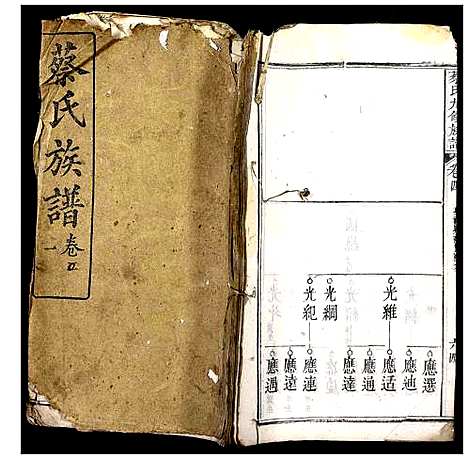 蔡氏族譜
卷五
一
蔡氏九修族譜
卷四
六四
光維
光綱
光紀
應選
應迪
應适
應通
應達
應連
應遠
應遇